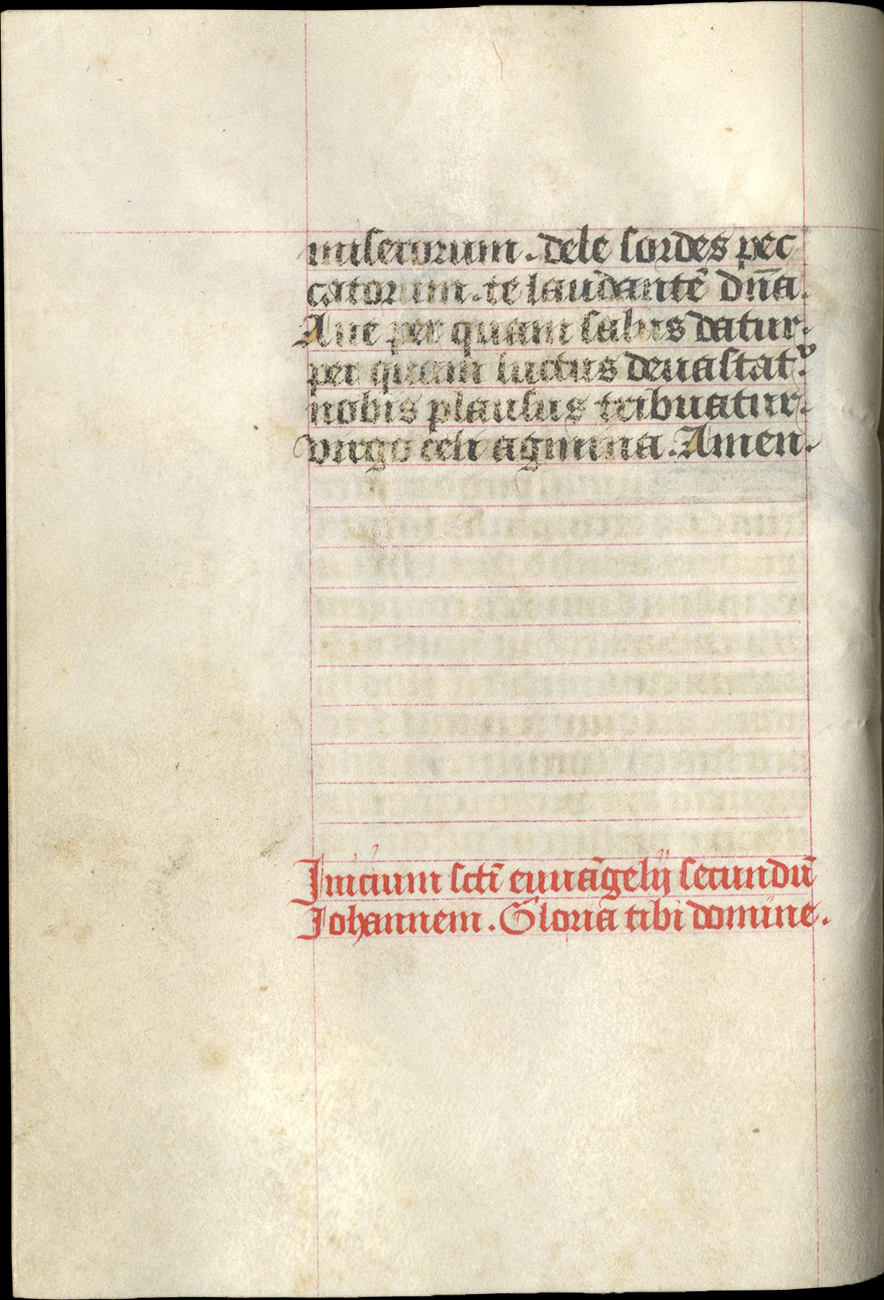 miserorum. dele sordes pec
catorum. te laudantē dn̄a.
Aue per quam salus datur.
per quam luctus deuastatꝰ
nobis plausus tribuatur.
virgo celi agmina. Amen.
Inicium sctī euuāgelij secundū
Johannem. Gloria tibi domine.